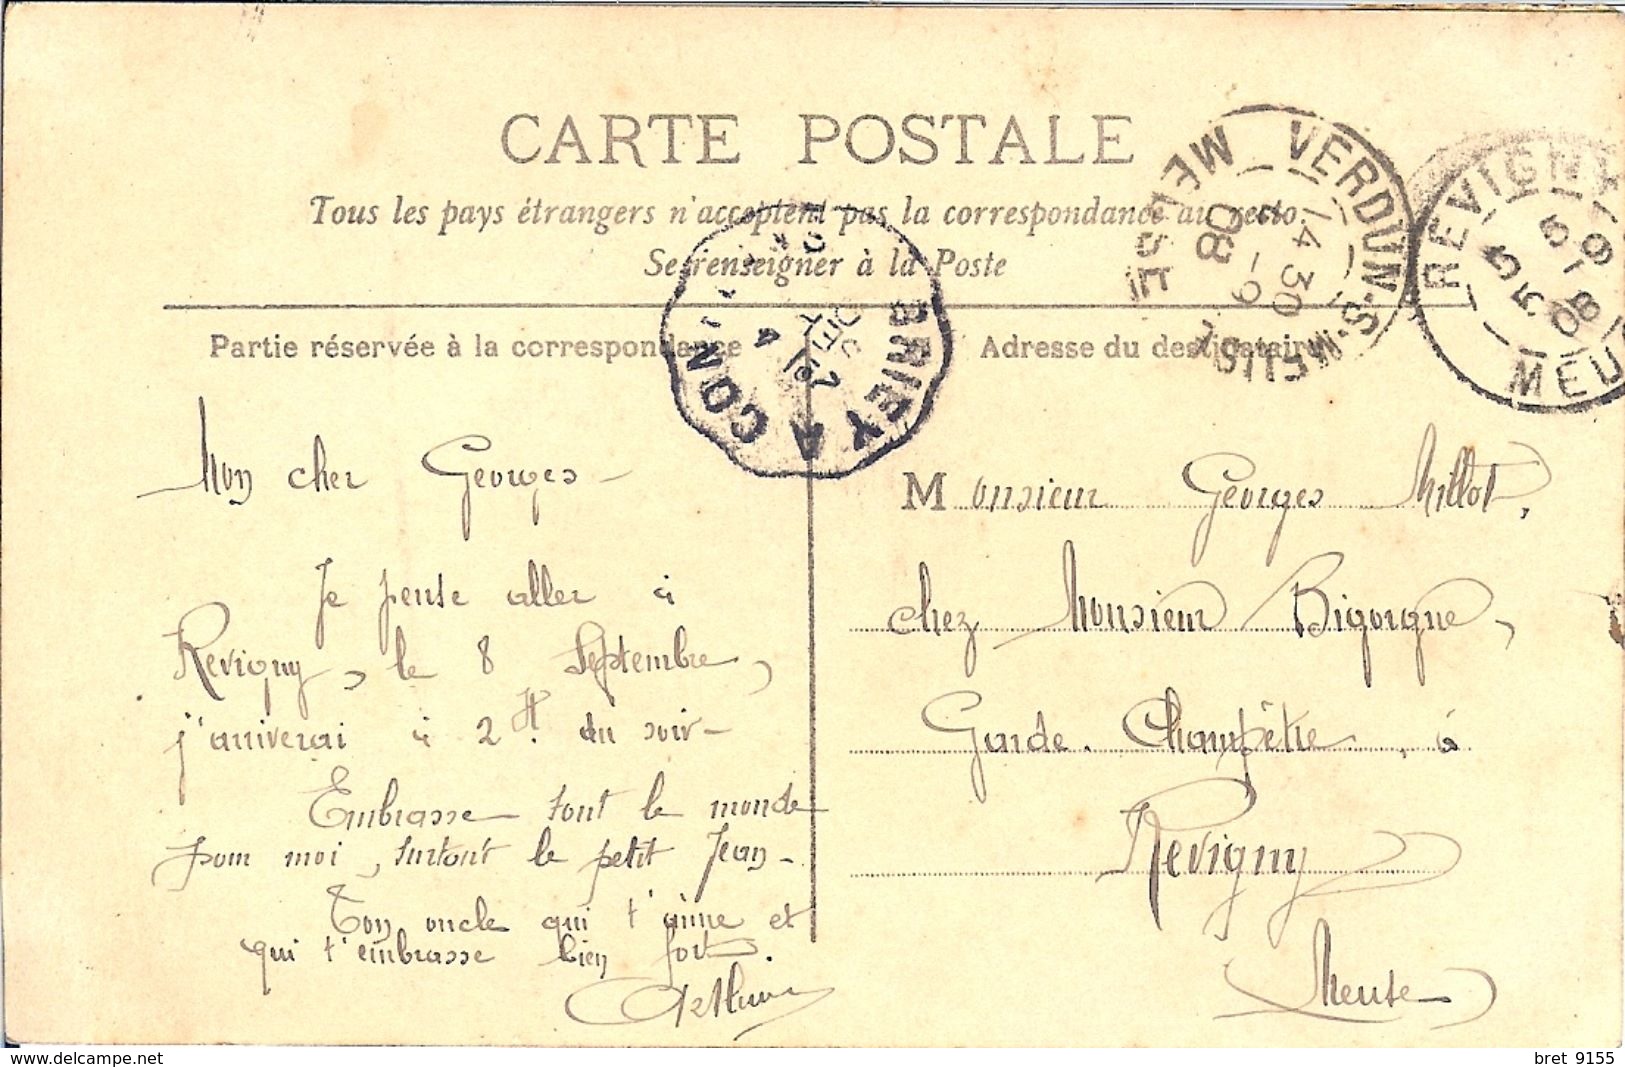 CARTE POSTALE
Tous les pays étrangers n'acceptent pas la correspondance au recto.
Se renseigner à la Poste
VERDUN-S-MEUSE
14 30
5 -9
08
MEUSE
REVIGNY
5 55
5 -9
08
MEU
BRIEY A CON
Partie réservée à la correspondance
Adresse du destinataire
Mon cher Georges -
Je pense aller à
Revigny, le 8 Septembre,
j'ariverai à 2 H. du soir -
Embrasse tout le monde
pour moi, surtout le petit Jean -
Ton oncle qui t'aime et
qui t'embrasse bien fort.
Arthur
Monsieur Georges Millot,
chez Monsieur Bigorgne,
Garde. Champêtre, à
Revigny
Meuse
bret 9155